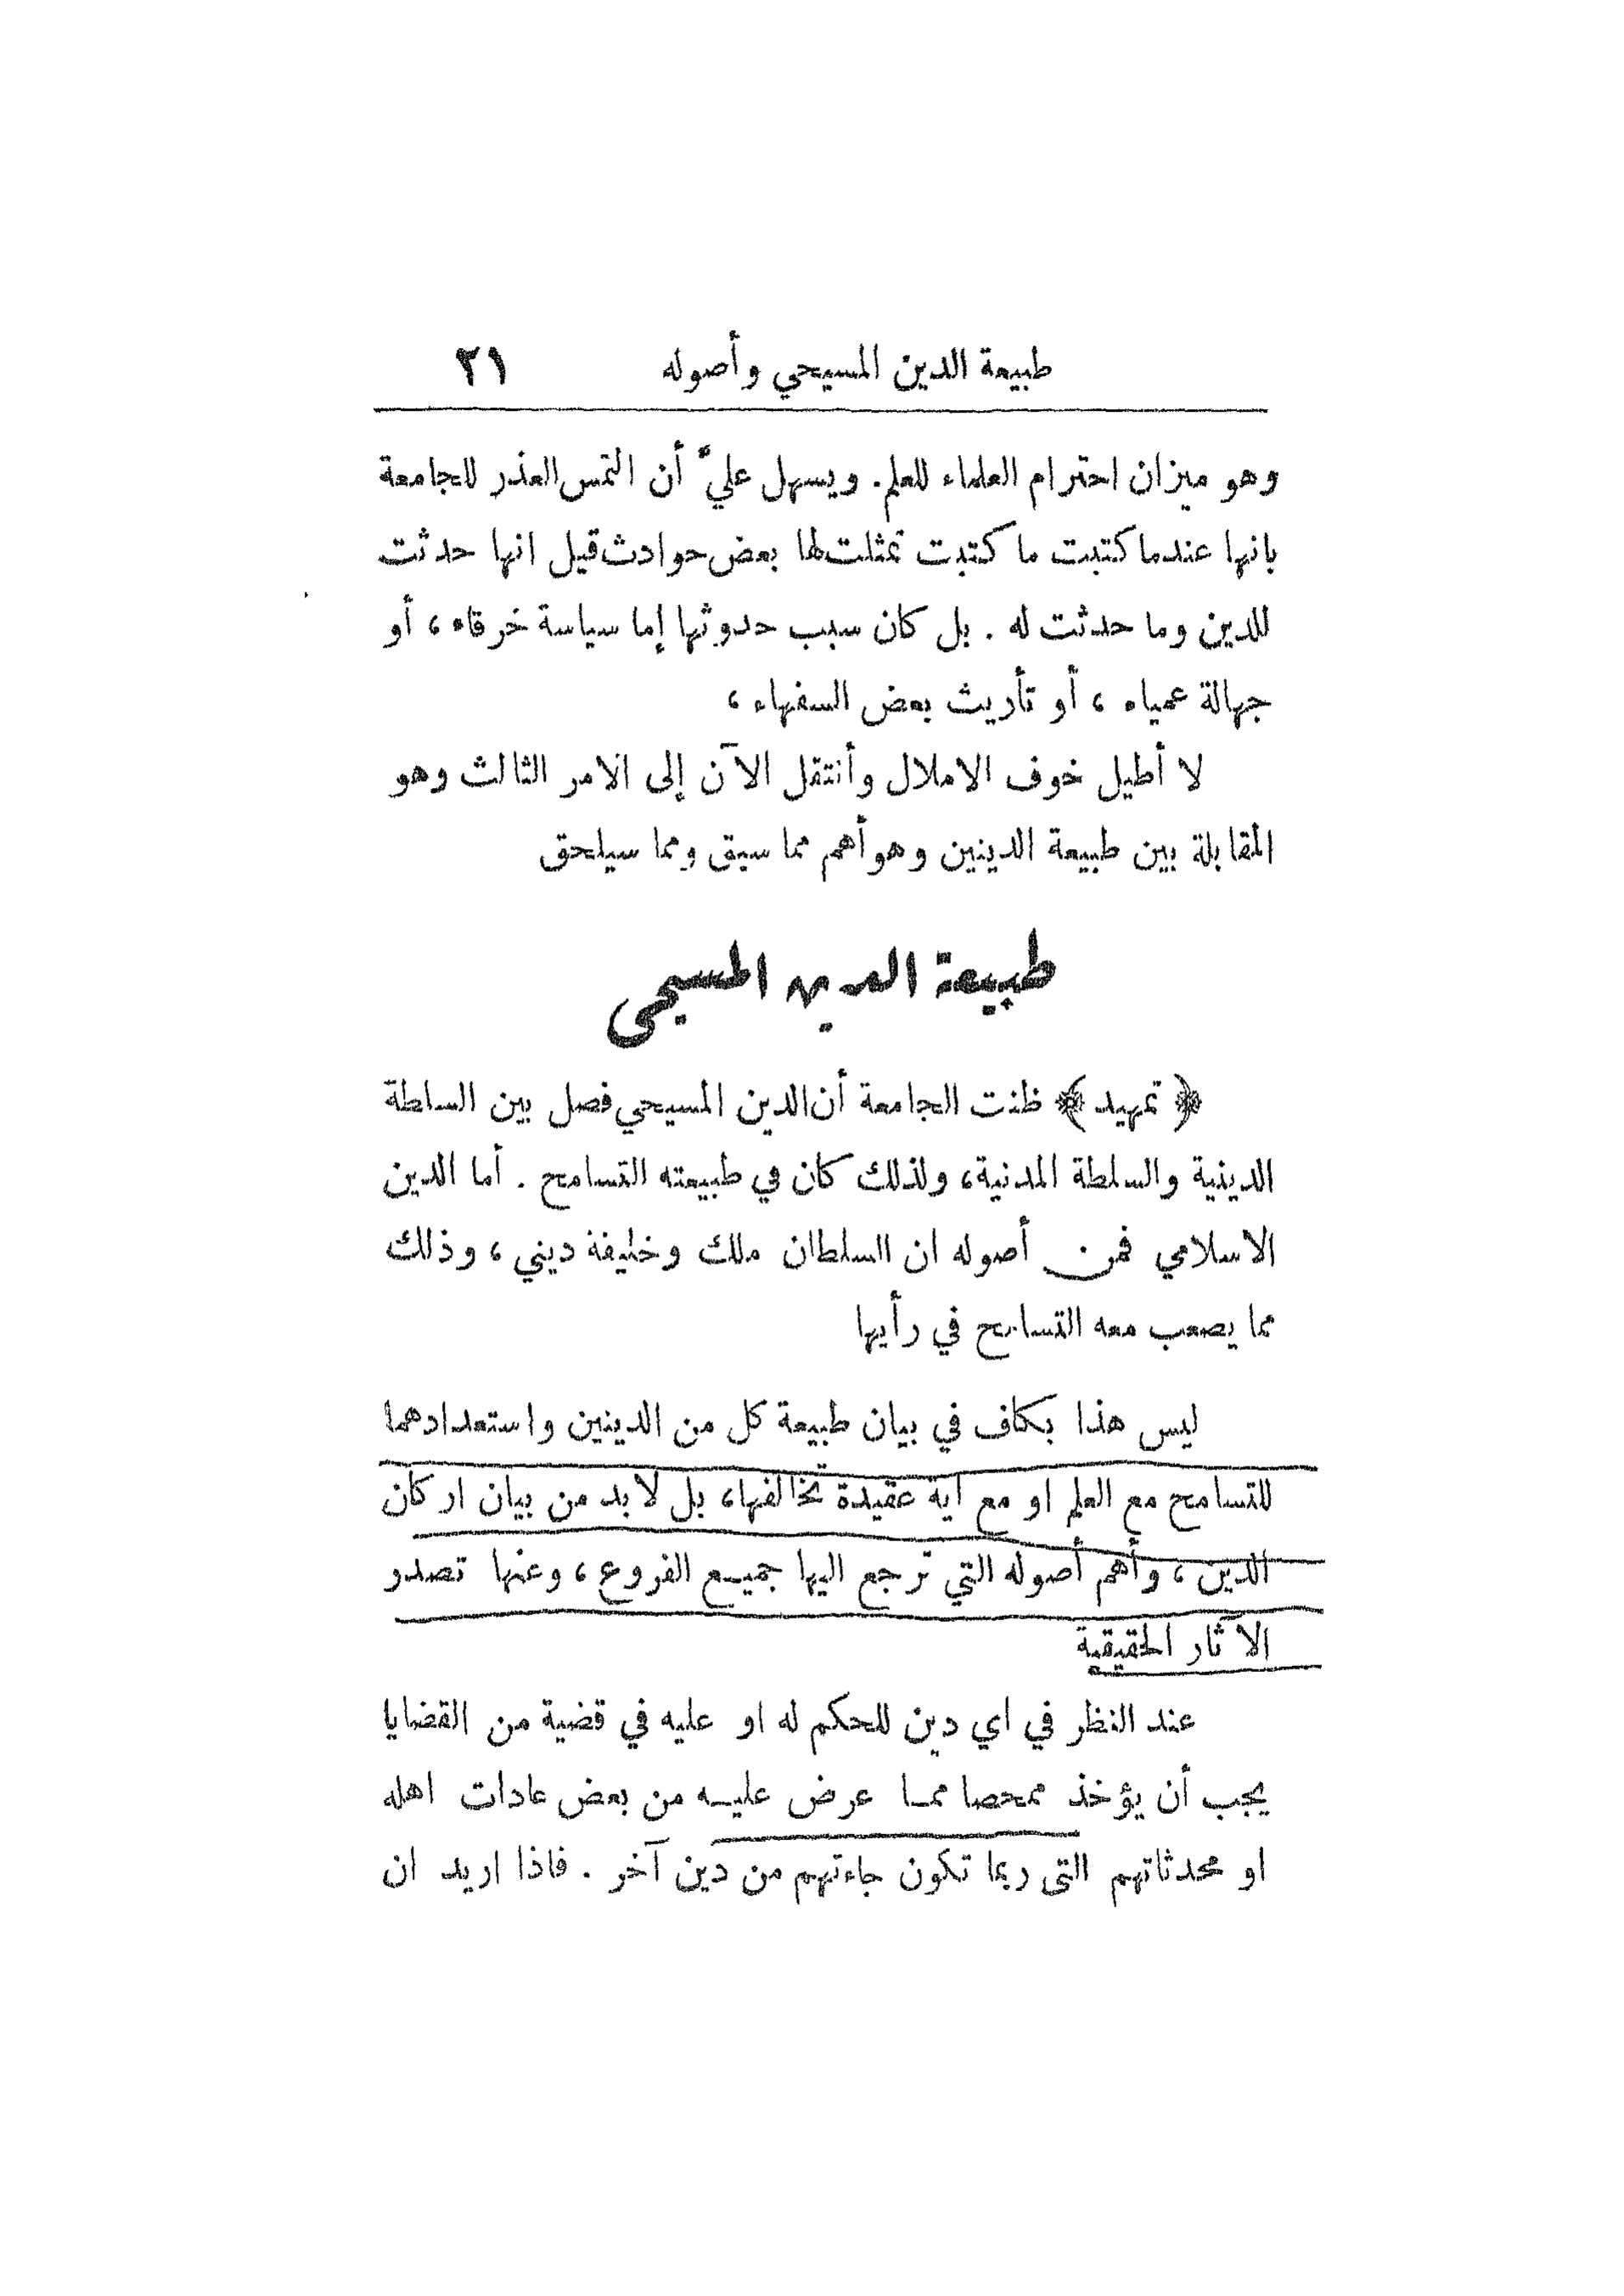 طبيعة الدين المسيحي وأصوله ٢١
وهو ميزان احترام العلماء للعلم. ويسهل عليَّ أن التمس العذر للجامعة
بانها عندما كتبت ما كتبت تمثلت لها بعض حوادث قيل انها حدثت
للدين وما حدثت له . بل كان سبب حدوثها إما سياسة خرقاء ، أو
جهالة عمياء ، أو تأريث بعض السفهاء ،
لا أطيل خوف الاملال وأنتقل الآن إلى الامر الثالث وهو
المقابلة بين طبيعة الدينين وهو أهم مما سبق ومما سيلحق
طبيعة الدين المسيحى
﴿ تمهيد ﴾ ظنت الجامعة أن الدين المسيحي فصل بين السلطة
الدينية والسلطة المدنية، ولذلك كان في طبيعته التسامح . أما الدين
الاسلامي فمن أصوله ان السلطان ملك وخليفة ديني ، وذلك
مما يصعب معه التسامح في رأيها
ليس هذا بكاف في بيان طبيعة كل من الدينين واستعدادهما
للتسامح مع العلم او مع اية عقيدة تخالفها، بل لا بد من بيان اركان
الدين ، وأهم أصوله التي ترجع اليها جميع الفروع ، وعنها تصدر
الآثار الحقيقية
عند النظر في اي دين للحكم له او عليه في قضية من القضايا
يجب أن يؤخذ ممحصا مما عرض عليه من بعض عادات اهله
او محدثاتهم التى ربما تكون جاءتهم من دين آخر . فاذا اريد ان